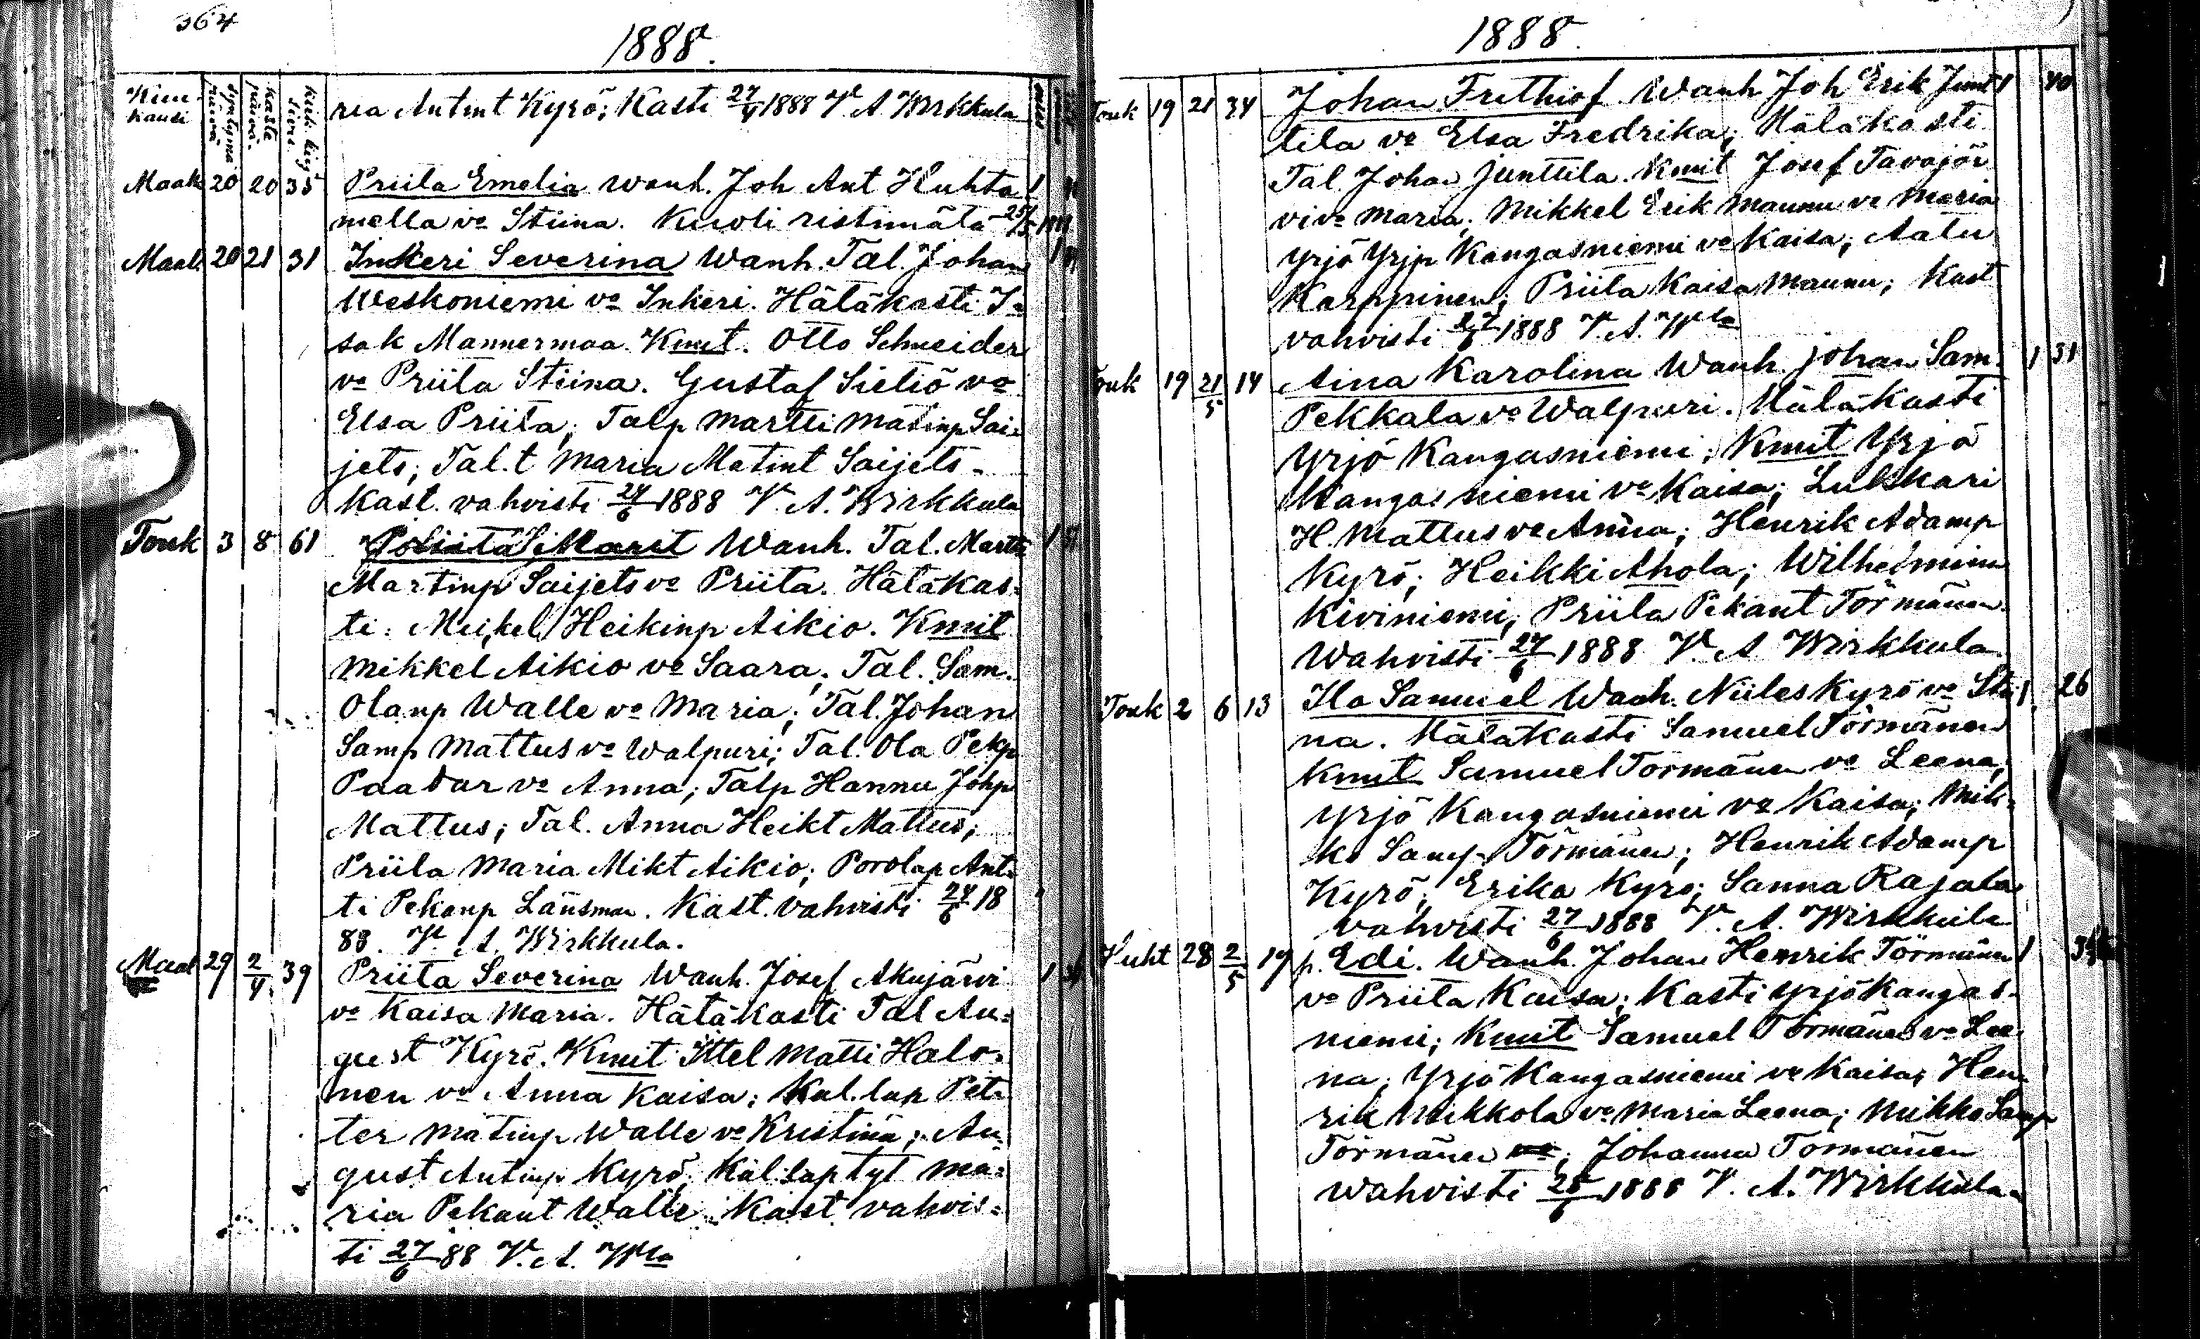 364
1888.
Kuu-
kausi
syntymä
päivä
kaste
päivä.
ria Antint Kyrö; Kasti 27/4 1888 V. A. Wirkkula
Maalk 20 20 35 Priita Emelia Wanh. Joh Ant Huhta 1
mella vo Stiina. Kuoli ristimätä
Maal. 20 21 31 Inkeri Severina Wanh. Tal Johan 1
Weskoniemi vo Inkeri. Hätäkasti I-
sak Mannermaa. Kmit. Otto Schneider
vo Priita Stiina. Gustaf Sieliö vo
Elsa Priita; Talp Martti Matinp Sai-
jets; Tal.t Maria Matint Saijets-
Kast. vahvisti 24/6 1888 V. A. Wirkkula
Touk 3 8 61 Marit Wanh. Tal. Martti 1
Martinp Saijets vo Priita. Hätäkas-
ti: Meikel Heikinp Aikio. Kmit
Mikkel Aikio vo Saara; Tal. Sam.
Olanp Walle vo Maria; Tal. Johan
Samp Mattus vo Walpuri; Tal. Ola Pekp
Paadar vo Anna; Talp Hannu Johp
Mattus; Tal. Anna Heikt Mattus;
Priita Maria Mikt Aikio; Porolap Ant-
ti Pekanp Länsman. Kast. vahvisti 24/6 18
88. V. A. Wirkkula.
Maal 29 2/4 39 Priita Severina Wanh. Josef Akujärvi 1
vo Kaisa Maria. Hätäkasti Tal Au-
gust Kyrö. Kmit Ittel Matti Halo-
nen vo Anna Kaisa; Kal.lap Pet-
ter Matinp Walle vo Kristina; Au-
gust Antinp Kyrö; Kal.lap tyt Ma-
ria Pekant Walle. Kast vahvis-
ti 27/6 88 V. A. Wla
1888.
Touk 19 21 34 Johan Frithiof Wanh Joh Erik Junt 1 40
tila vo Elsa Fredrika; Hätäkasti
Tal. Johan Junttila. Kmit Josef Tavajär
vi vo Maria; Mikkel Erik Maunu vo Maria
Yrjö Yrjp Kangasniemi vo Kaisa; Aatu
Karppinen; Priita Kaisa Maunu; Kast
vahvisti 27/6 1888 V. A. Wla
Touk 19 21/5 14 Aina Karolina Wanh. Johan Sam. 1 31
Pekkala vo Walpuri. Hätäkasti
Yrjö Kangasniemi; Kmit Yrjö
Kangasniemi vo Kaisa; Lukkari
H. Mattus vo Anna; Henrik Adamp
Kyrö; Heikki Ahola; Wilhelmiina
Kiviniemi; Priita Pekant Törmänen
Wahvisti 27/6 1888 V. A Wirkkula.
Touk 2 6 13 Ilo Samuel Wanh. Niiles Kyrö vo Sti 1 26
na. Hätäkasti Samuel Törmänen
Kmit Samuel Törmänen vo Leena;
Yrjö Kangasniemi vo Kaisa; Mik-
ko Samp Törmänen; Henrik Adamp
Kyrö; Erika Kyrö; Sanna Rajala
vahvisti 27/6 1888 V. A. Wirkkula
Huht 28 2/5 19 p. Edi. Wanh. Johan Henrik Törmänen 1
vo Priita Kaisa; Kasti Yrjö Kangas-
niemi; Kmit Samuel Törmänen vo Lee
na; Yrjö Kangasniemi vo Kaisa; Hen-
rik Mikkola vo Maria Leena; Mikko Samp
Törmänen vo; Johanna Törmänen
Wahvisti 28/6 1888 V. A. Wirkkula